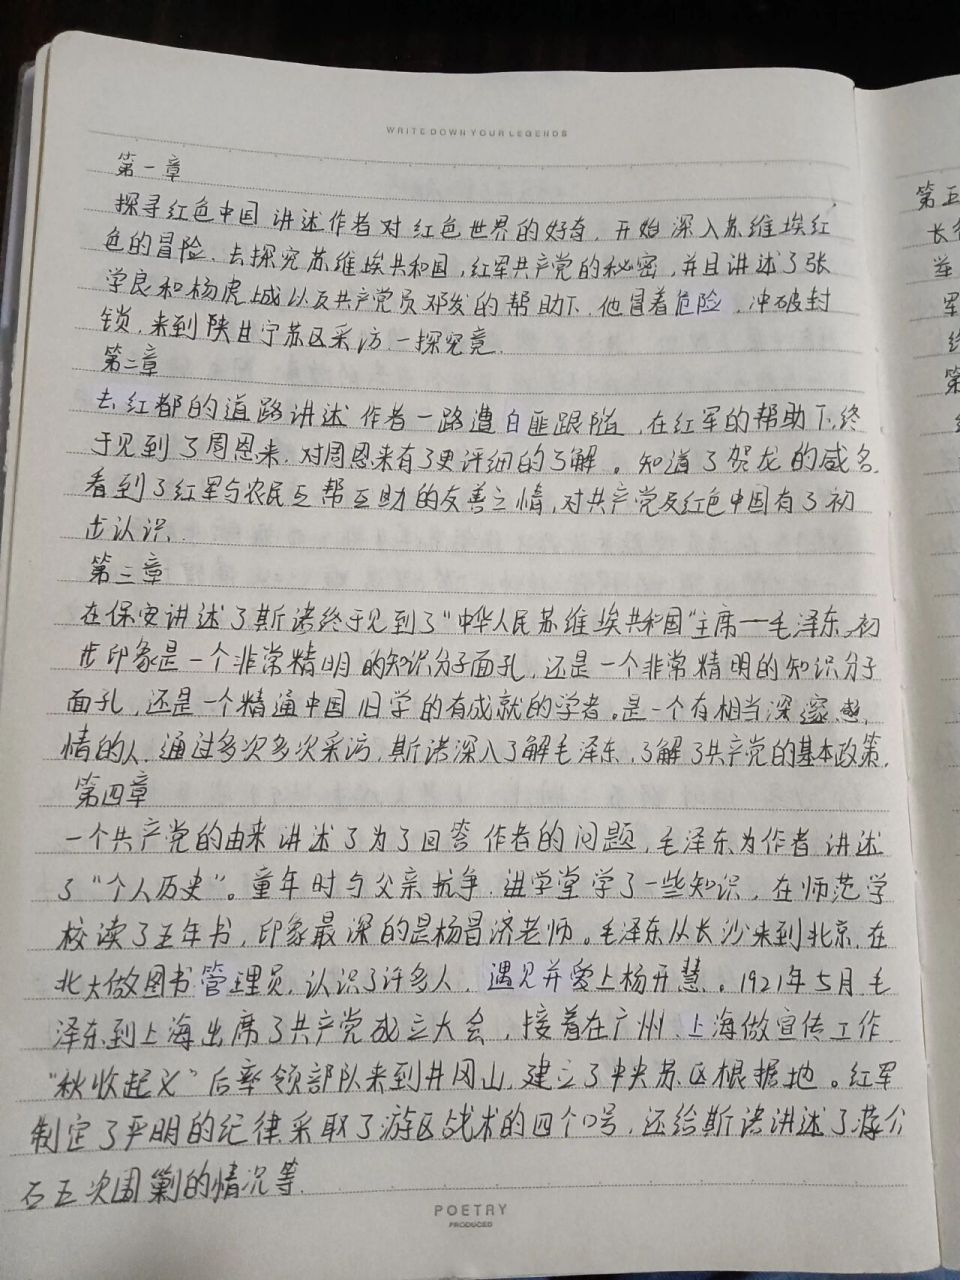 WRITE DOWN YOUR LEGENDS
第一章
探寻红色中国 讲述作者对红色世界的好奇，开始深入苏维埃红
色的冒险、去探究苏维埃共和国，红军共产党的秘密，并且讲述了张
学良和杨虎城以及共产党员邓发的帮助下，他冒着危险，冲破封
锁，来到陕甘宁苏区采访，一探究竟.
第二章
去红都的道路讲述作者一路遭白匪跟随，在红军的帮助下，终
于见到了周恩来，对周恩来有了更详细的了解。知道了贺龙的威名，
看到了红军与农民互帮互助的友善之情，对共产党及红色中国有了初
步认识.
第三章
在保安讲述了斯诺终于见到了"中华人民苏维埃共和国"主席——毛泽东，初
步印象是一个非常精明的知识分子面孔，还是一个非常精明的知识分子
面孔，还是一个精通中国旧学的有成就的学者。是一个有相当深邃感
情的人，通过多次多次采访，斯诺深入了解毛泽东，了解了共产党的基本政策.
第四章
一个共产党的由来讲述了为了回答作者的问题，毛泽东为作者讲述
了"个人历史"。童年时与父亲抗争，进学堂学了一些知识，在师范学
校读了五年书，印象最深的是杨昌济老师。毛泽东从长沙来到北京，在
北大做图书管理员，认识了许多人，遇见并爱上杨开慧。1921年5月毛
泽东到上海出席了共产党成立大会，接着在广州、上海做宣传工作
"秋收起义"后率领部队来到井冈山，建立了中央苏区根据地。红军
制定了严明的纪律采取了游区战术的四个口号，还给斯诺讲述了蒋介
石五次围剿的情况等.
POETRY
PRODUCED
第五
长征
军
第